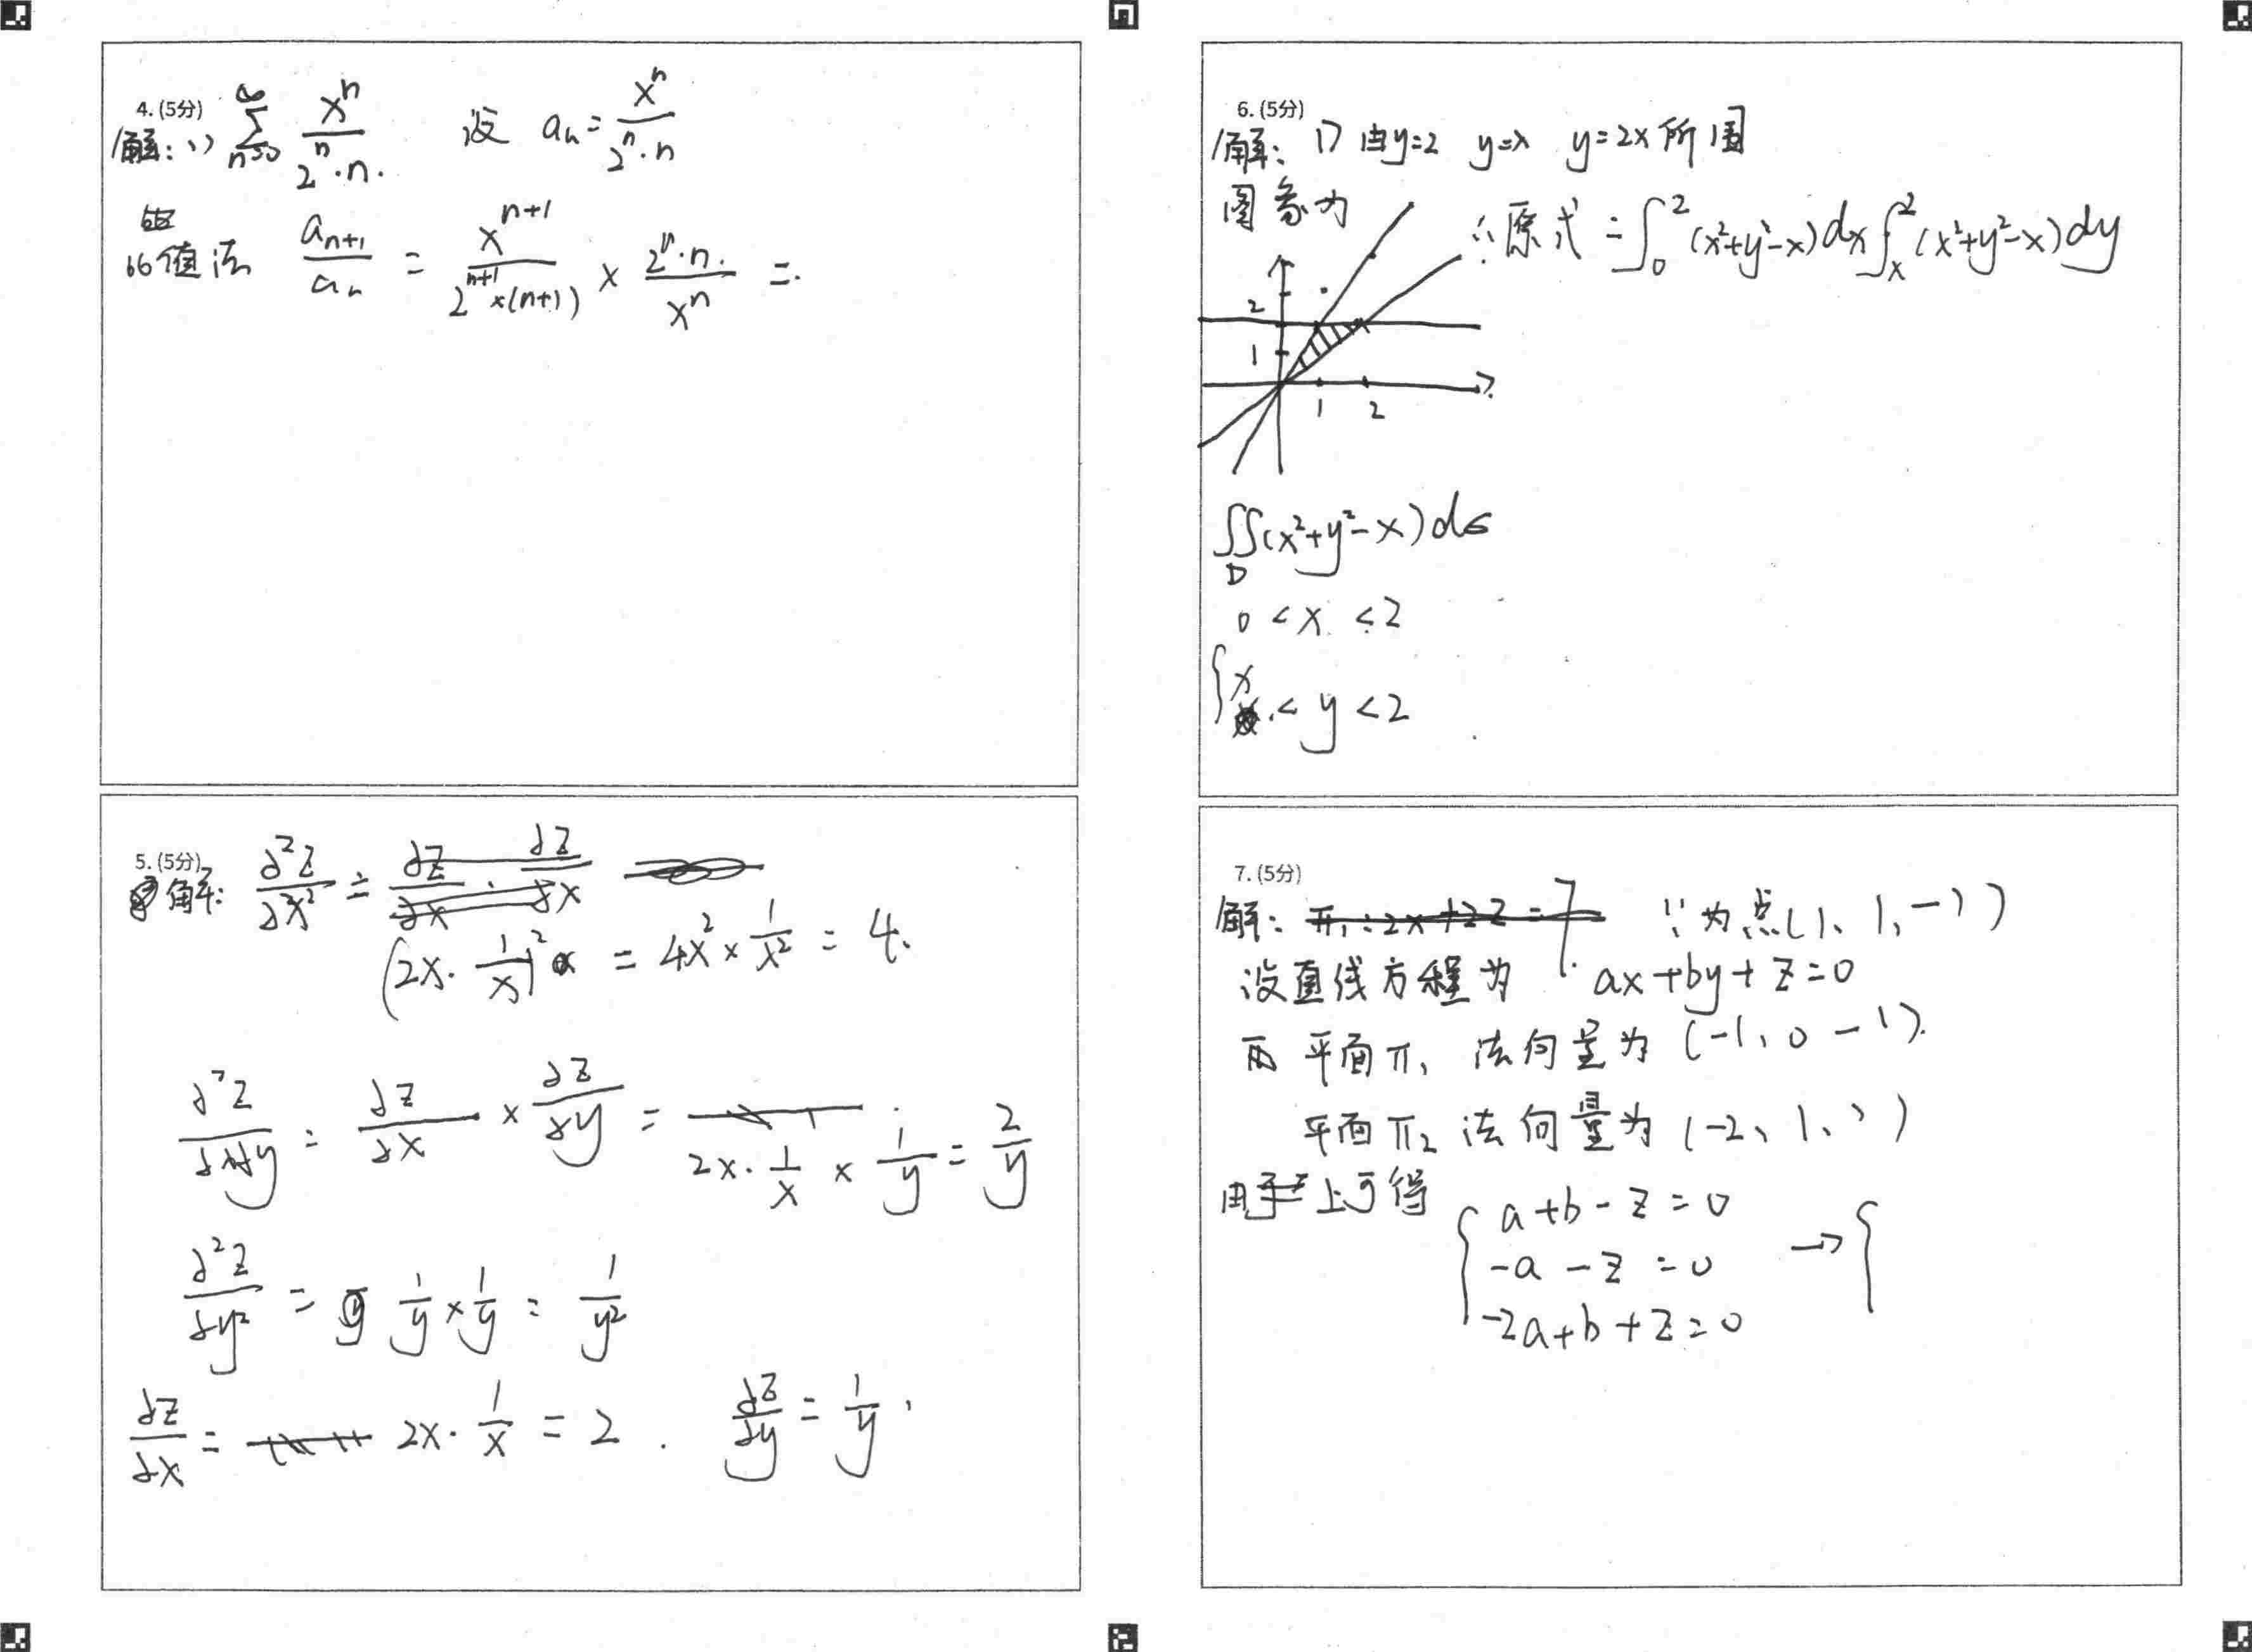 4. (5分)
解: 1) $\sum_{n=0}^{\infty} \frac{x^n}{2^n \cdot n.}$ 设 $a_n = \frac{x^n}{2^n \cdot n}$
比值法 $\frac{a_{n+1}}{a_n} = \frac{x^{n+1}}{2^{n+1} \times (n+1)} \times \frac{2^n \cdot n.}{x^n} =$
5. (5分)
解: $\frac{\partial^2 z}{\partial x^2} =$
$(2x \cdot \frac{1}{x})^2 = 4x^2 \times \frac{1}{x^2} = 4.$
$\frac{\partial^2 z}{\partial x \partial y} = \frac{\partial z}{\partial x} \times \frac{\partial z}{\partial y} = 2x \cdot \frac{1}{x} \times \frac{1}{y} = \frac{2}{y}$
$\frac{\partial^2 z}{\partial y^2} = \frac{1}{y} \times \frac{1}{y} = \frac{1}{y^2}$
$\frac{\partial z}{\partial x} = 2x \cdot \frac{1}{x} = 2.$ $\frac{\partial z}{\partial y} = \frac{1}{y}.$
6. (5分)
解: 1) 由y=2 y=x y=2x所围
图象为
∴原式 $= \int_0^2 (x^2+y^2-x)dx \int_x^2 (x^2+y^2-x)dy$
2
1
1 2
$\iint_D (x^2+y^2-x)d\sigma$
0 < x < 2
{ x < y < 2
7. (5分)
解: π₁: 2x+2z=7. ∵为点(1、1、-1)
设直线方程为 ax+by+z=0
两平面π₁ 法向量为 (-1、0 -1).
平面π₂ 法向量为 (-2、1、1)
由上可得
{ a+b-z=0
-a-z=0 → {
-2a+b+z=0